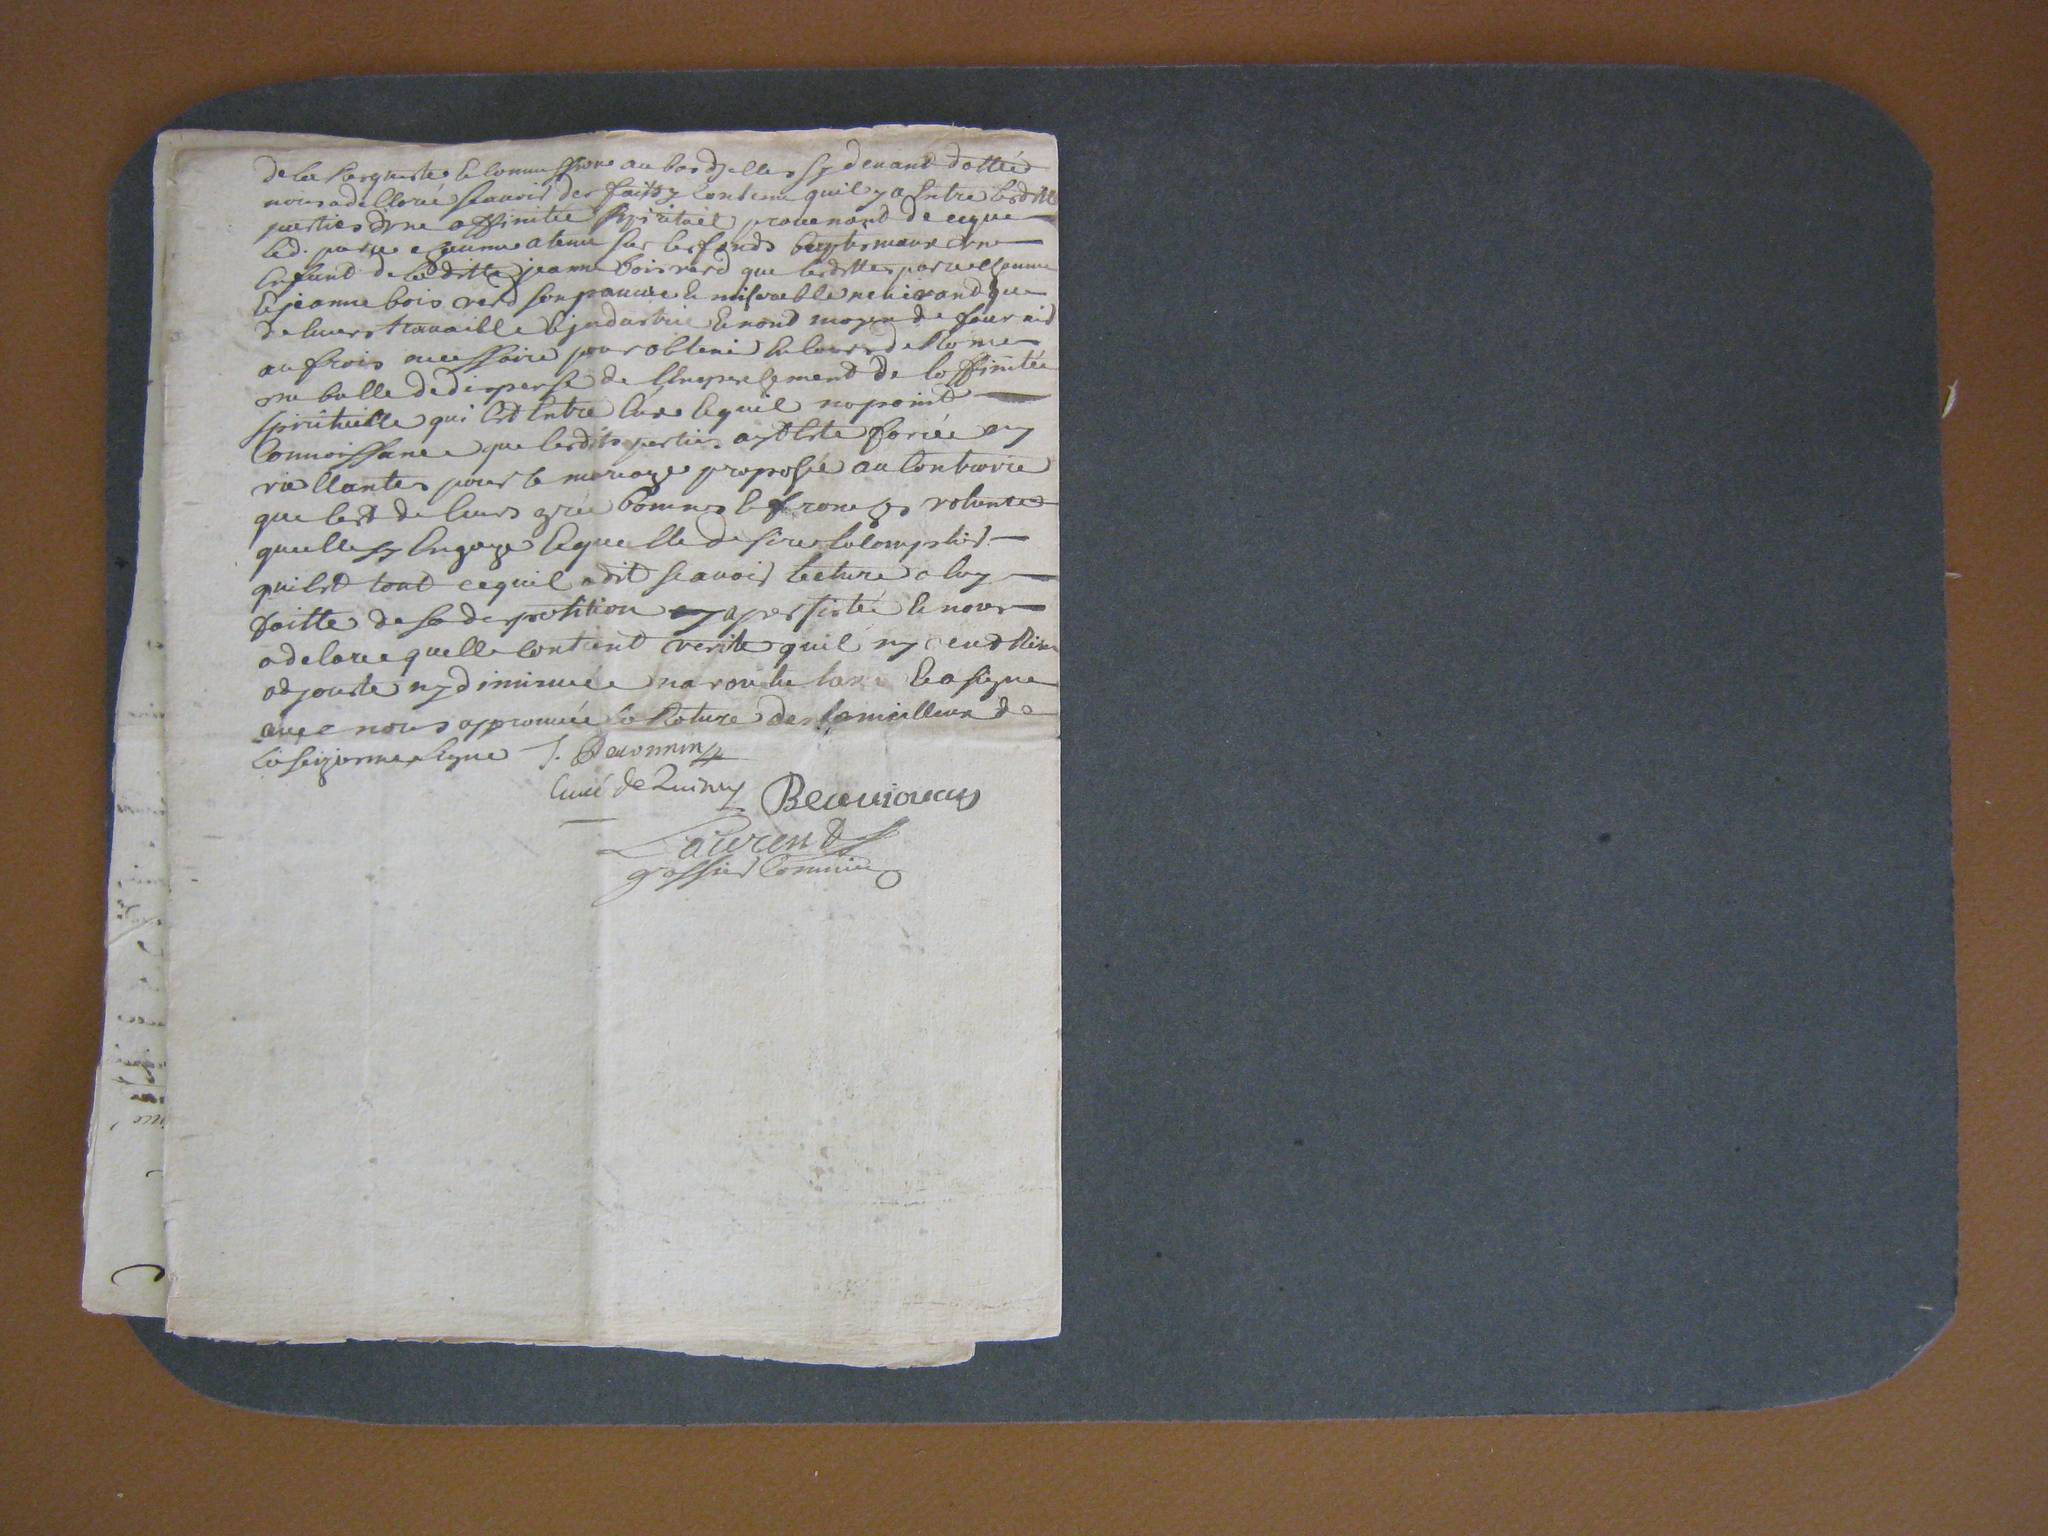 de la Requeste & Commissions au bas d'jelles Cy devant dattée
nous a declaré scavoir des faits y Contenu quil y a Entre lesdittes
parties vne affinitée spirituel provenant de ceque
led. parue a tenu sur les fonds baptismaux vn
Enfant de laditte jeanne boisverd que lesdittes
& jeanne bois verd son pauvre & miserable ne vivant que
de leurs travaille & jndustrie & nond moyen de fournir
au frais necessaire pour obtenir En Cours de Rome
vne bulle de dispense de Lempeschement de laffinitée
spirituelle qui Est Entre Eux & quil na point
Connoissance que lesdits parties ayt Esté forcée ny
viollantes pour le mariage proposée au Contraire
que Cest de leurs grée bonnes & franches volontes
quelle sy Engage & quelle desire laComplir
qui Est tout cequil a dit scavoir lecture a luy
faitte de sa deposition y a persistée & nous
a declaré quelle Contient verité quil ny veut Rien
adjouste ny diminuée na voulu taxe & a signe
avec nous approuvée la Rature de la
la seizieme Ligne J. Baronnin
Curé de Quincy Beauvioreau
Laurend
greffier Commis